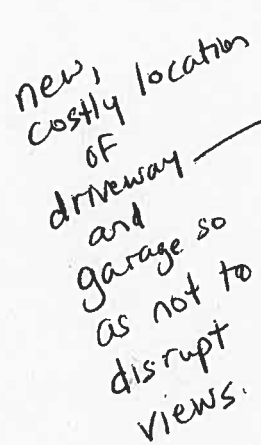 new,
costly location
of
driveway
and
garage so
as not to
disrupt
views.